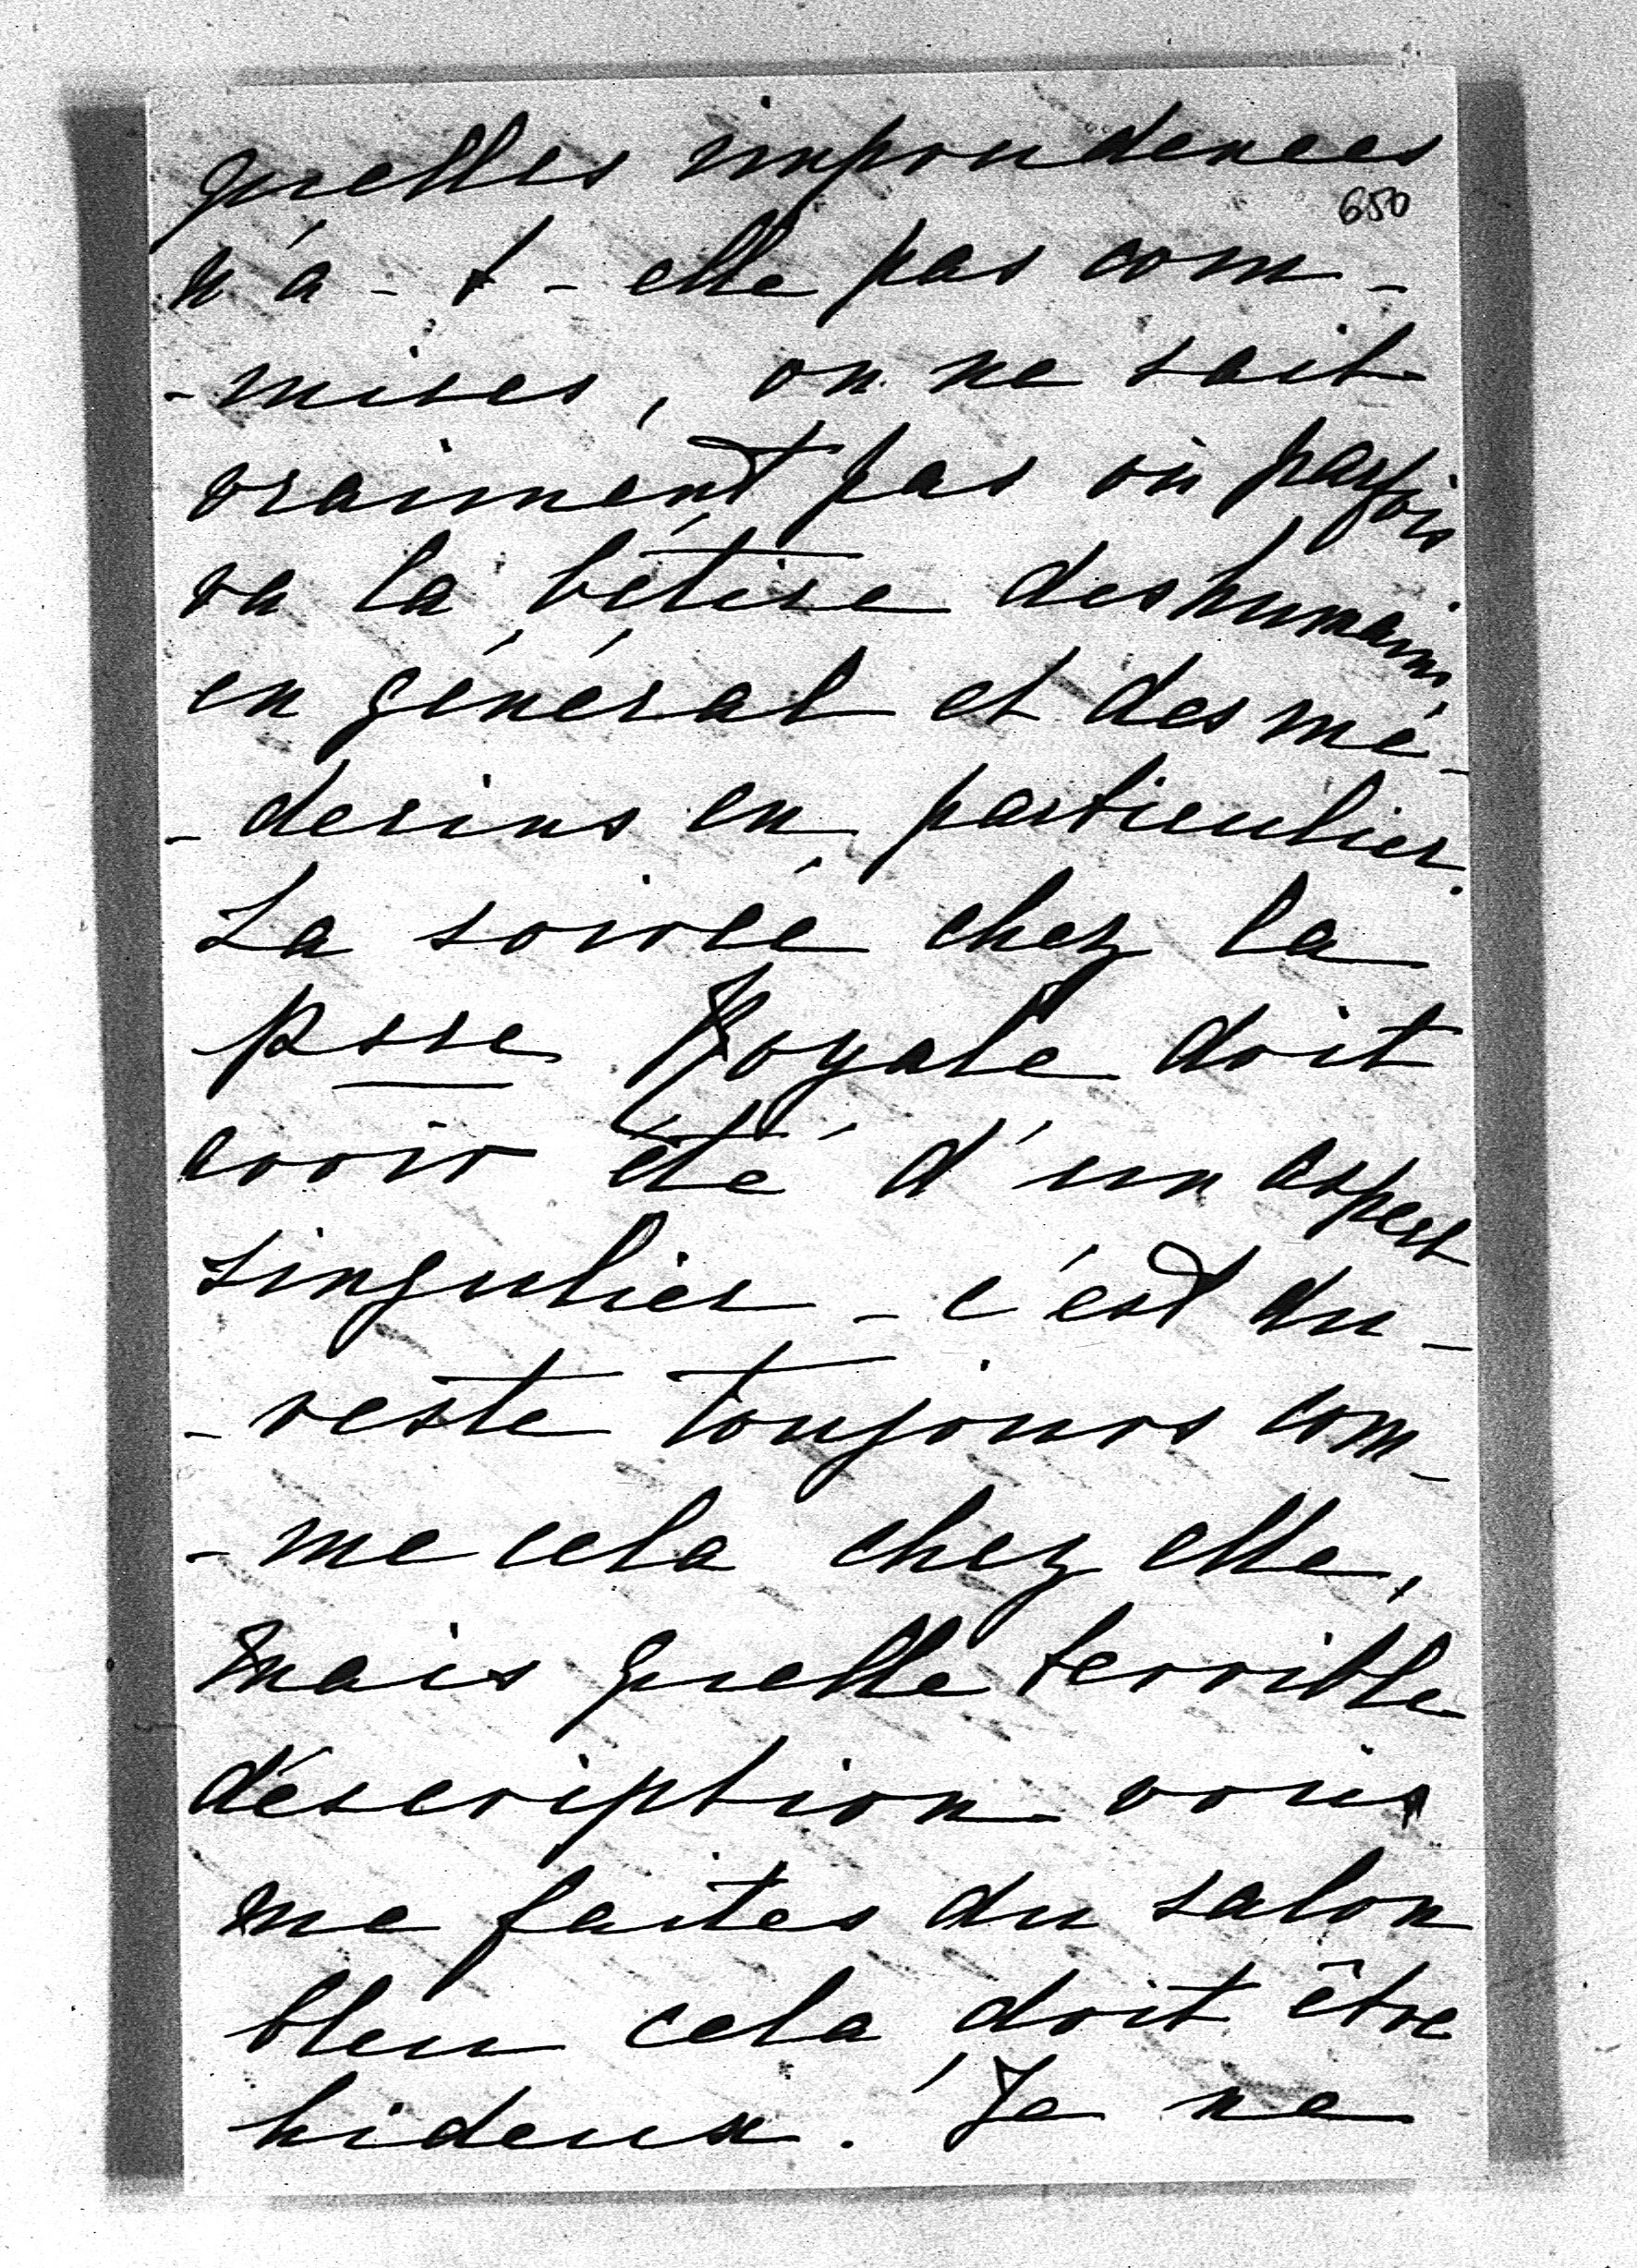 quelles imprudences
650
n'a-t-elle pas com-
-mises, on ne sait
vraiment pas où parfois
va la bêtise des humains
en général et des mé-
-decins en particulier.
La soirée chez la
Psse Royale doit
avoir été d'un aspect
singulier - c'est du-
-reste toujours com-
-me cela chez elle,
mais quelle terrible
déscription vous
me faites du salon
bleu cela doit être
hideux. Je ne